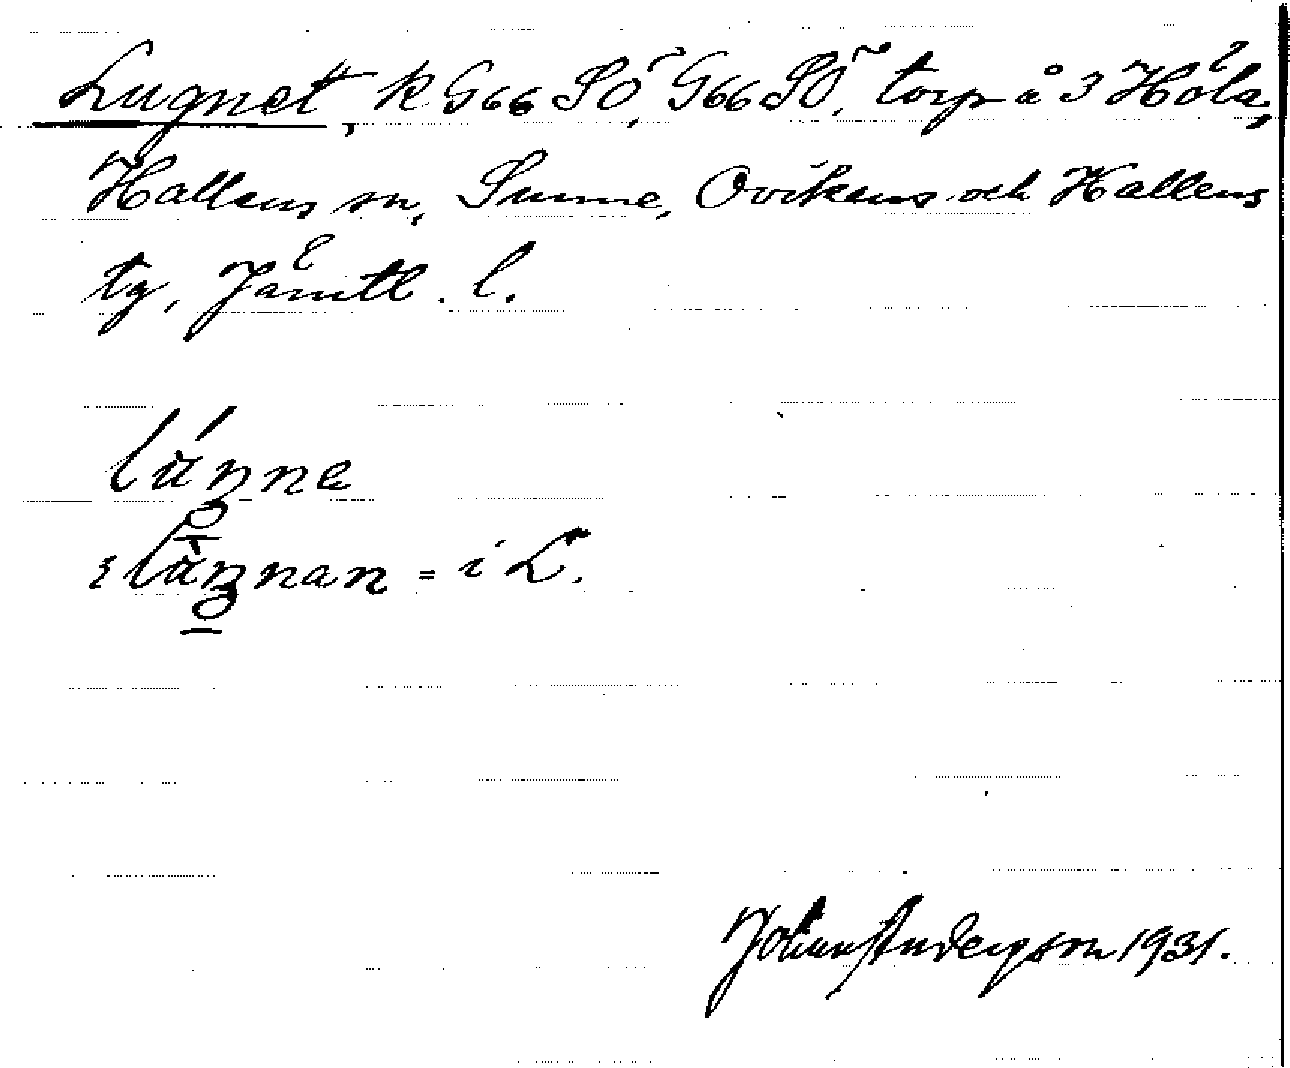 Lugnet, k G66 SÖ, G66 SÖ, torp å 3 Höla,
Hallens sn, Sunne, Ovikens och Hallens
tg, Jämtl. l.
i L.
Johan Anderson 1931.